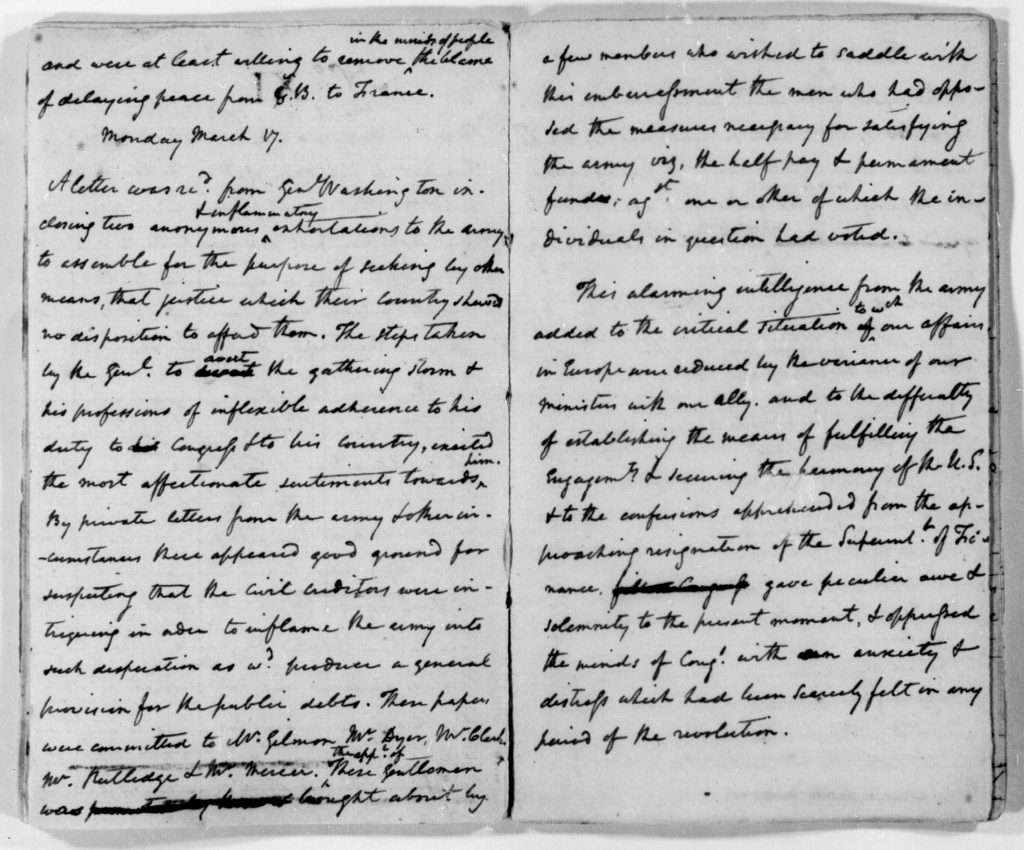 in the minds of people
and were at least willing to remove ^ the blame
of delaying peace from G.B. to France.
Monday March 17.
A letter was recd. from Genl. Washington in-
& inflammatory
closing two anonymous ^ exhortations to the army
to assemble for the purpose of seeking by other
means, that justice which their country shewed
no disposition to afford them. The steps taken
avert
by the Genl. to the gathering storm &
his professions of inflexible adherence to his
duty to his Congress & to his country, excited
him.
the most affectionate sentiments towards ^
By private letters from the army & other cir-
-cumstances there appeared good ground for
suspecting that the Civil creditors were in-
triguing in order to inflame the army into
such desperation as wd. produce a general
provision for the public debts. These papers
were committed to Mr. Gilmon, Mr. Dyer, Mr. Clark,
the appt. of
Mr. Rutledge & Mr. Mercer. ^ These Gentlemen
was brought about by
a few members who wished to saddle with
this embarrassment the men who had oppo-
sed the measures necessary for satisfying
the army viz, the half pay & permanent
funds; agst. one or other of which the in-
dividuals in question had voted.
This alarming intelligence from the army
to wch
added to the critical situation ^ of our affairs
in Europe were reduced by the variance of our
ministers with our ally. and to the difficulty
of establishing the means of fulfilling the
Engagemts. & securing the harmony of the U.S.
& to the confusions apprehended from the ap-
proaching resignation of the Superintt. of Fi-
nance. gave peculiar awe &
solemnity to the present moment, & oppressed
the minds of Congs. with an anxiety &
distress which had been scarcely felt in any
period of the revolution.